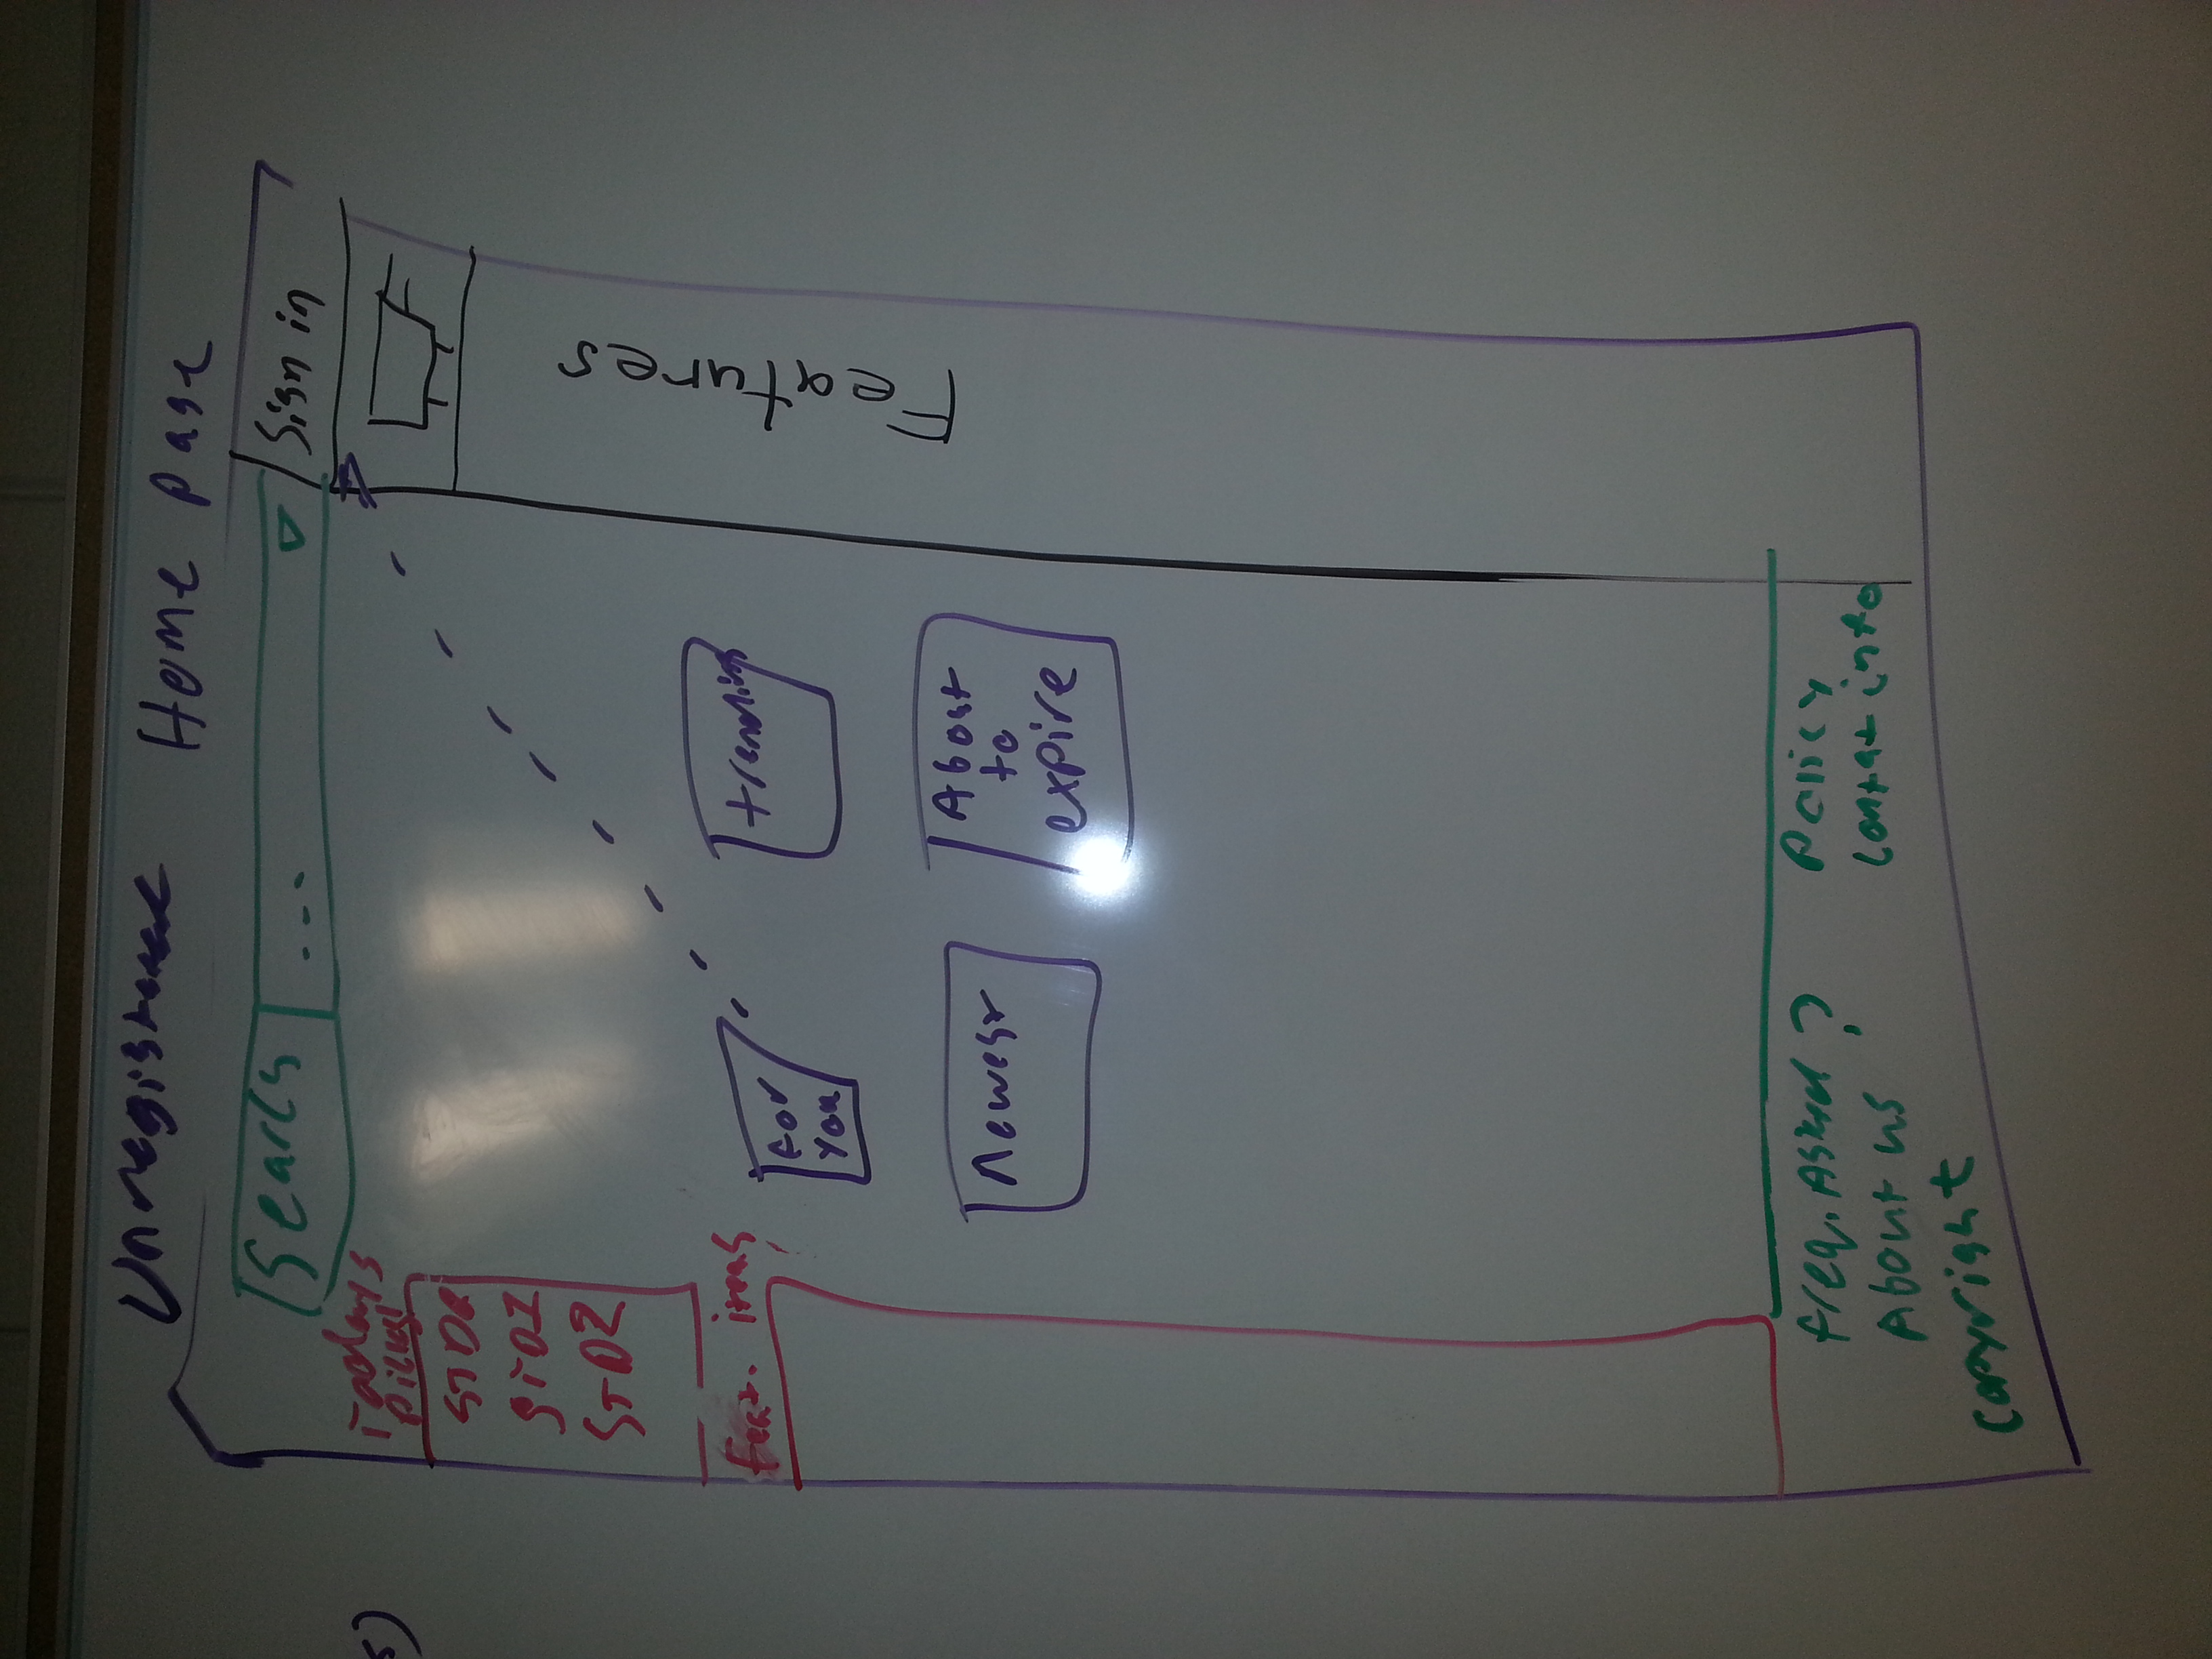 Unregistered Home page
Search ... Sign in
Todays
STD2
Feat. items
For
you
trending
Newest
About
to
expire
Features
freq. Asked ?
About us
Copyright
Policy
Contat info
s)